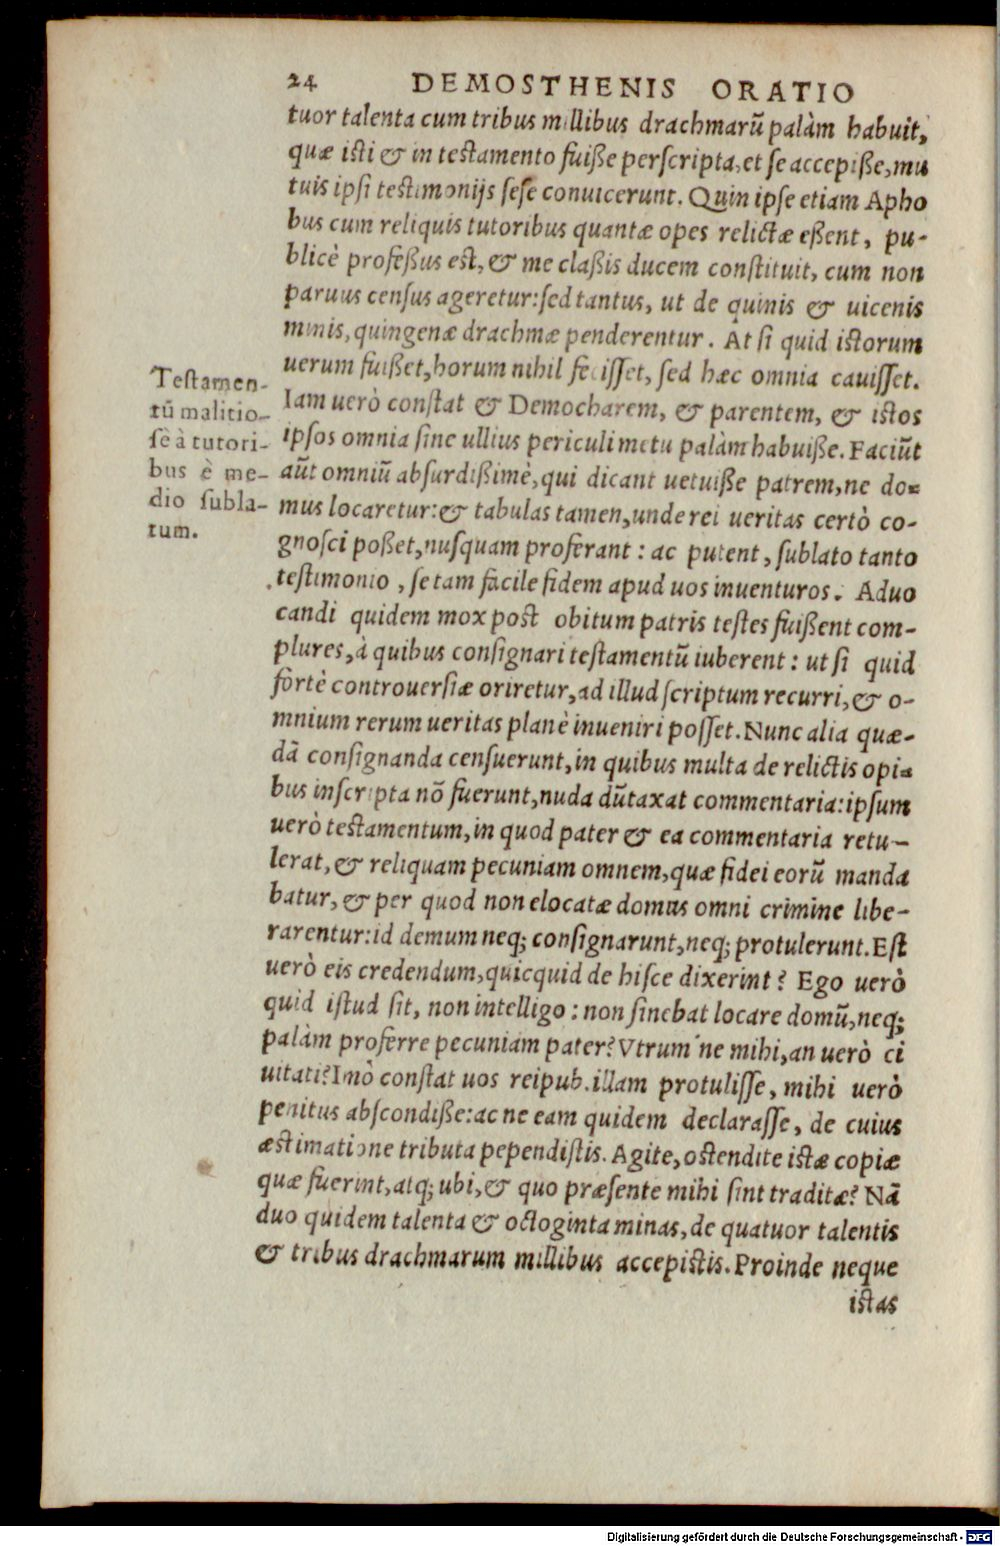 24 DEMOSTHENIS ORATIO
tuor talenta cum tribus millibus drachmarũ palàm habuit,
quæ isti & in testamento fuiße perscripta, et se accepiße, mu
tuis ipsi testimonijs sese conuicerunt. Quin ipse etiam Apho
bus cum reliquis tutoribus quantæ opes relictæ eßent, pu-
blicè profeßus est, & me claßis ducem constituit, cum non
paruus census ageretur: sed tantus, ut de quinis & uicenis
minis, quingenæ drachmæ penderentur. At si quid istorum
uerum fuißet, horum nihil fecisset, sed hæc omnia cauisset.
Iam uerò constat & Democharem, & parentem, & istos
ipsos omnia sine ullius periculi metu palàm habuiße. Faciũt
aũt omniũ absurdißimè, qui dicant uetuiße patrem, ne do-
mus locaretur: & tabulas tamen, unde rei ueritas certò co-
gnosci poßet, nusquam proferant: ac putent, sublato tanto
testimonio, se tam facile fidem apud uos inuenturos. Aduo
candi quidem mox post obitum patris testes fuißent com-
plures, à quibus consignari testamentũ iuberent: ut si quid
fortè controuersiæ oriretur, ad illud scriptum recurri, & o-
mnium rerum ueritas planè inueniri posset. Nunc alia quæ-
dã consignanda censuerunt, in quibus multa de relictis opi-
bus inscripta nõ fuerunt, nuda dũtaxat commentaria: ipsum
uerò testamentum, in quod pater & ea commentaria retu-
lerat, & reliquam pecuniam omnem, quæ fidei eorũ manda
batur, & per quod non elocatæ domus omni crimine libe-
rarentur: id demum neq; consignarunt, neq; protulerunt. Est
uerò eis credendum, quicquid de hisce dixerint? Ego uerò
quid istud sit, non intelligo: non sinebat locare domũ, neq;
palàm proferre pecuniam pater? Vtrum'ne mihi, an uerò ci
uitati? Imò constat uos reipub. illam protulisse, mihi uerò
penitus abscondiße: ac ne eam quidem declarasse, de cuius
æstimatione tributa pependistis. Agite, ostendite istæ copiæ
quæ fuerint, atq; ubi, & quo præsente mihi sint traditæ? Nã
duo quidem talenta & octoginta minas, de quatuor talentis
& tribus drachmarum millibus accepistis. Proinde neque
istas
Testamen-
tũ malitio-
sè à tutori-
bus è me-
dio subla-
tum.
Digitalisierung gefördert durch die Deutsche Forschungsgemeinschaft - DFG